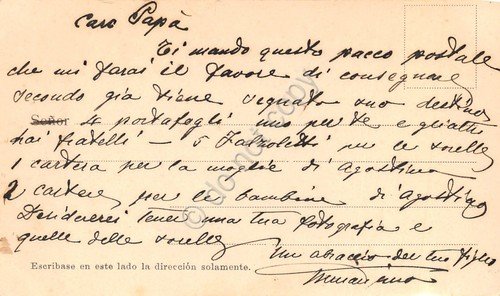 Caro Papà
Ti mando questo pacco postale
che mi farai il favore di consegnare
secondo già viene segnato suo destino
Señor 4 portafogli uno per te e gli altri
hai fratelli — 5 Fazzoletti per le sorelle
1 cartera per la moglie di Agostino
2 cartere per le bambine di Agostino
Desidererei tener una tua fotografia e
quelle delle sorelle
Un abraccio del tuo figlio
Escríbase en este lado la dirección solamente.